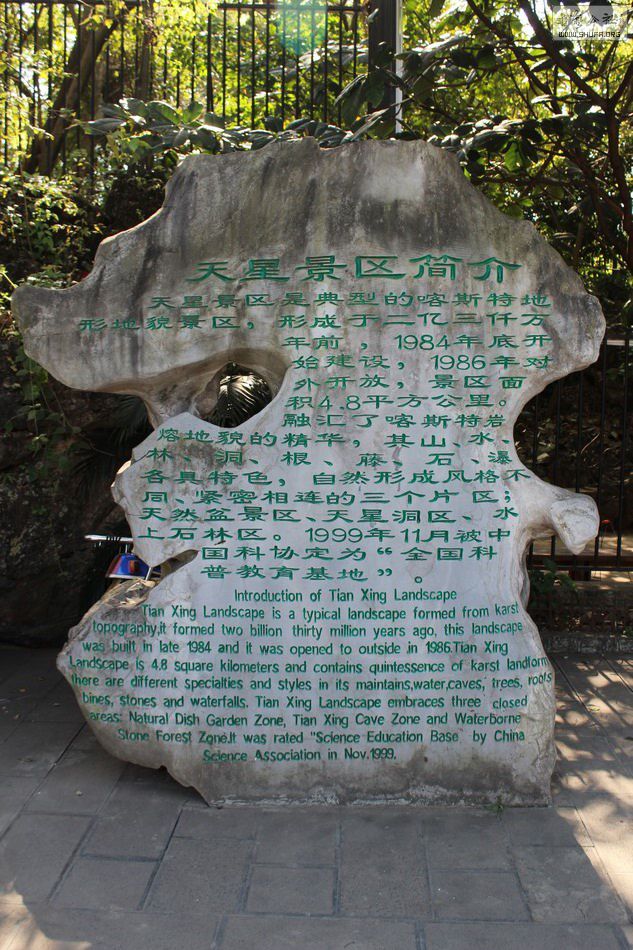 WWW.SHUFA.ORG
天星景区简介
天星景区是典型的喀斯特地
形地貌景区，形成于二亿三仟万
年前，1984年底开
始建设，1986年对
外开放，景区面
积4.8平方公里。
融汇了喀斯特岩
熔地貌的精华，其山、水、
林、洞、根、藤、石、瀑
各具特色，自然形成风格不
同、紧密相连的三个片区；
天然盆景区、天星洞区、水
上石林区。1999年11月被中
国科协定为“全国科
普教育基地”。
Introduction of Tian Xing Landscape
Tian Xing Landscape is a typical landscape formed from karst
topography,it formed two billion thirty million years ago, this landscape
was built in late 1984 and it was opened to outside in 1986.Tian Xing
Landscape is 4.8 square kilometers and contains quintessence of karst landform
there are different specialties and styles in its maintains,water,caves, trees, roots
bines, stones and waterfalls. Tian Xing Landscape embraces three closed
areas: Natural Dish Garden Zone, Tian Xing Cave Zone and Waterborne
Stone Forest Zone.It was rated "Science Education Base" by China
Science Association in Nov.1999.